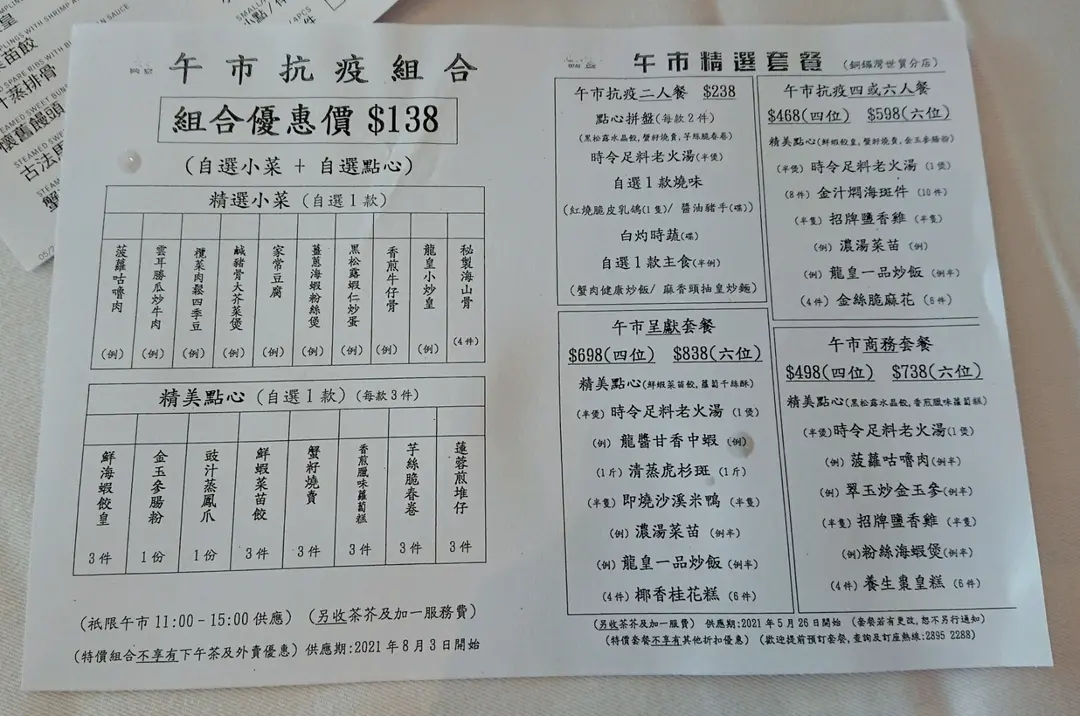 午市抗疫組合
組合優惠價 $138
(自選小菜 + 自選點心)
精選小菜 (自選1款)
菠蘿咕嚕肉 (例)
雲耳勝瓜炒牛肉 (例)
欖菜肉鬆四季豆 (例)
鹹豬骨大芥菜煲 (例)
家常豆腐 (例)
薑蔥海蝦粉絲煲 (例)
黑松露蝦仁炒蛋 (例)
香煎牛仔骨 (例)
龍皇小炒皇 (例)
秘製海山骨 (4件)
精美點心 (自選1款) (每款3件)
鮮海蝦餃皇 3件
金玉參腸粉 1份
豉汁蒸鳳爪 1份
鮮蝦菜苗餃 3件
蟹籽燒賣 3件
香煎臘味蘿蔔糕 3件
芋絲脆春卷 3件
蓮蓉煎堆仔 3件
(祇限午市 11:00 - 15:00 供應) (另收茶芥及加一服務費)
(特價組合不享有下午茶及外賣優惠) 供應期:2021年8月3日開始
午市精選套餐 (銅鑼灣世貿分店)
午市抗疫二人餐 $238
點心拼盤(每款2件)
(黑松露水晶餃,蟹籽燒賣,芋絲脆春卷)
時令足料老火湯(半煲)
自選1款燒味
(紅燒脆皮乳鴿(1隻)/ 醬油豬手(碟))
白灼時蔬(碟)
自選1款主食(半例)
(蟹肉健康炒飯/ 麻香頭抽皇炒麵)
午市抗疫四或六人餐
$468(四位) $598(六位)
精美點心(鮮蝦餃皇,蟹籽燒賣,金玉參腸粉)
(半煲) 時令足料老火湯 (1煲)
(8件) 金汁燜海斑件 (10件)
(半隻) 招牌鹽香雞 (半隻)
(例) 濃湯菜苗 (例)
(例) 龍皇一品炒飯 (例半)
(4件) 金絲脆麻花 (6件)
午市呈獻套餐
$698(四位) $838(六位)
精美點心(鮮蝦菜苗餃,蘿蔔千絲酥)
(半煲) 時令足料老火湯 (1煲)
(例) 龍醬甘香中蝦 (例)
(1斤) 清蒸虎杉斑 (1斤)
(半隻) 即燒沙溪米鴨 (半隻)
(例) 濃湯菜苗 (例半)
(例) 龍皇一品炒飯 (例半)
(4件) 椰香桂花糕 (6件)
午市商務套餐
$498(四位) $738(六位)
精美點心(黑松露水晶餃,香煎臘味蘿蔔糕)
(半煲)時令足料老火湯(1煲)
(例) 菠蘿咕嚕肉(例半)
(例) 翠玉炒金玉參(例半)
(半隻) 招牌鹽香雞 (半隻)
(例)粉絲海蝦煲(例半)
(4件) 養生棗皇糕 (6件)
(另收茶芥及加一服費) 供應期:2021年5月26日開始 (套餐若有更改,恕不另行通知)
(特價套餐不享有其他折扣優惠) (歡迎提前預訂套餐,查詢及訂座熱線:2895 2288)